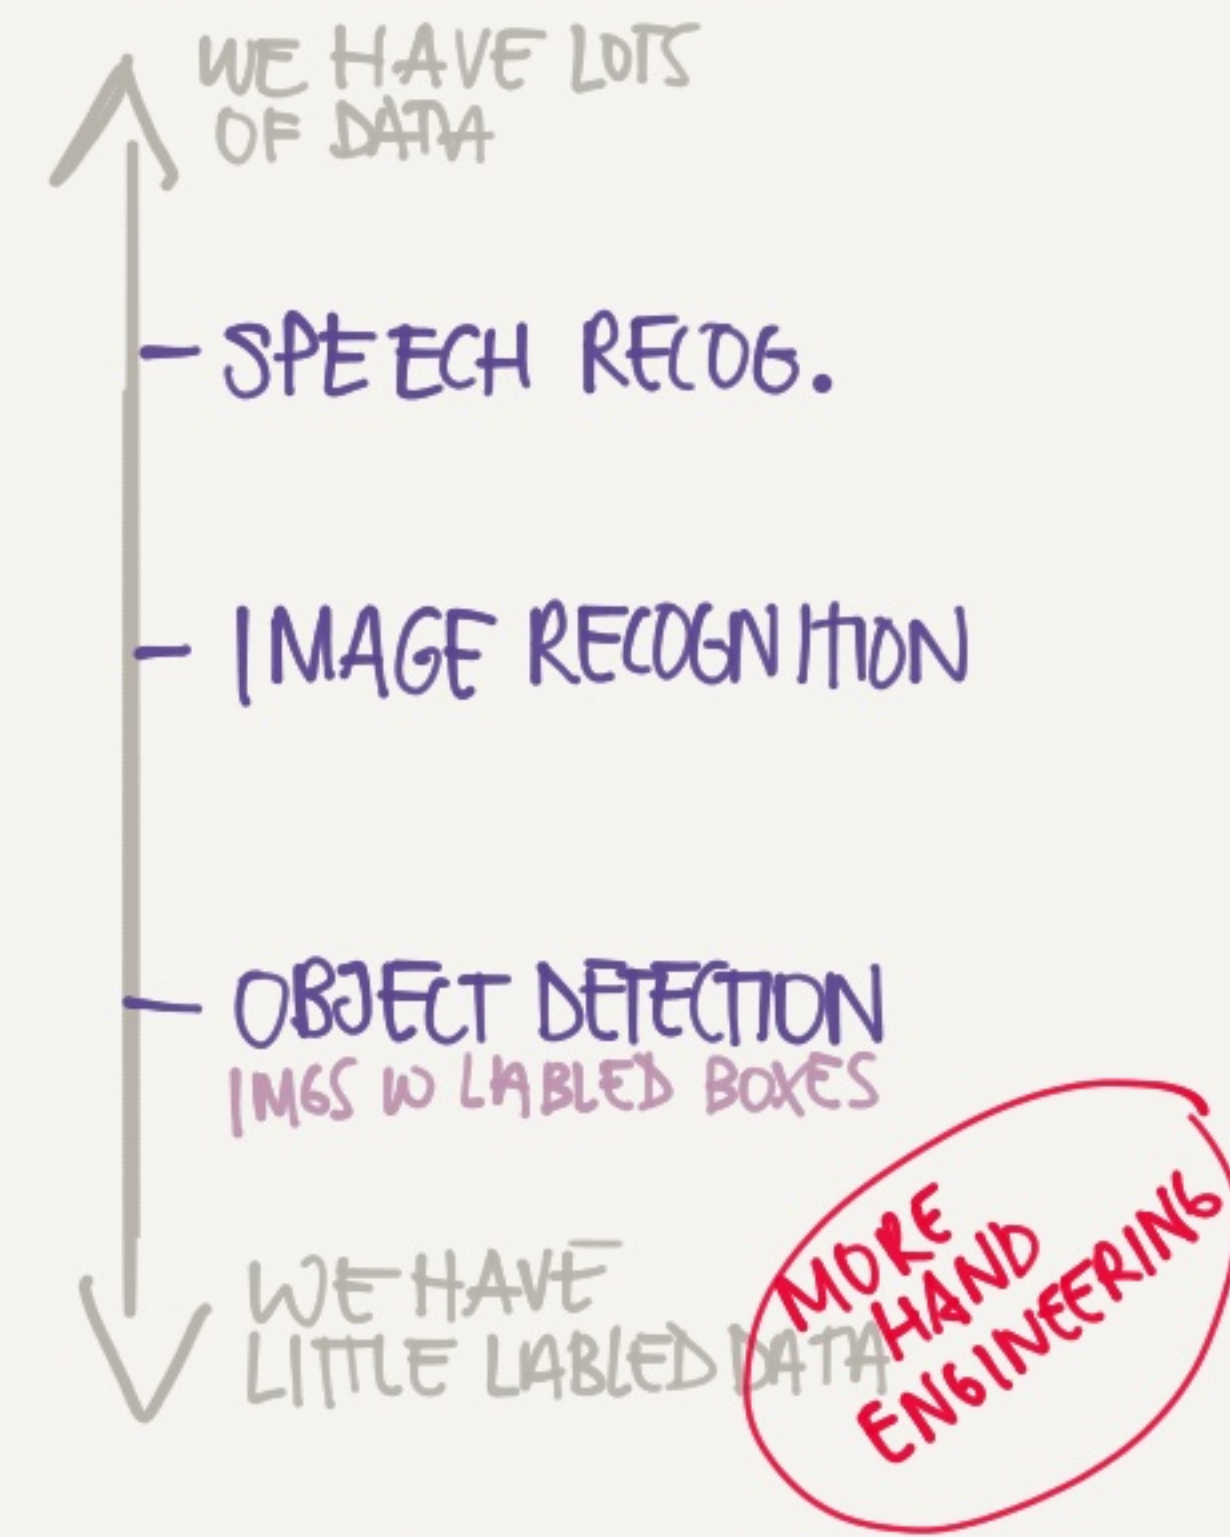 WE HAVE LOTS
OF DATA
SPEECH RECOG.
IMAGE RECOGNITION
OBJECT DETECTION
IMGS W LABLED BOXES
WE HAVE
LITTLE LABLED DATA
MORE
HAND
ENGINEERING